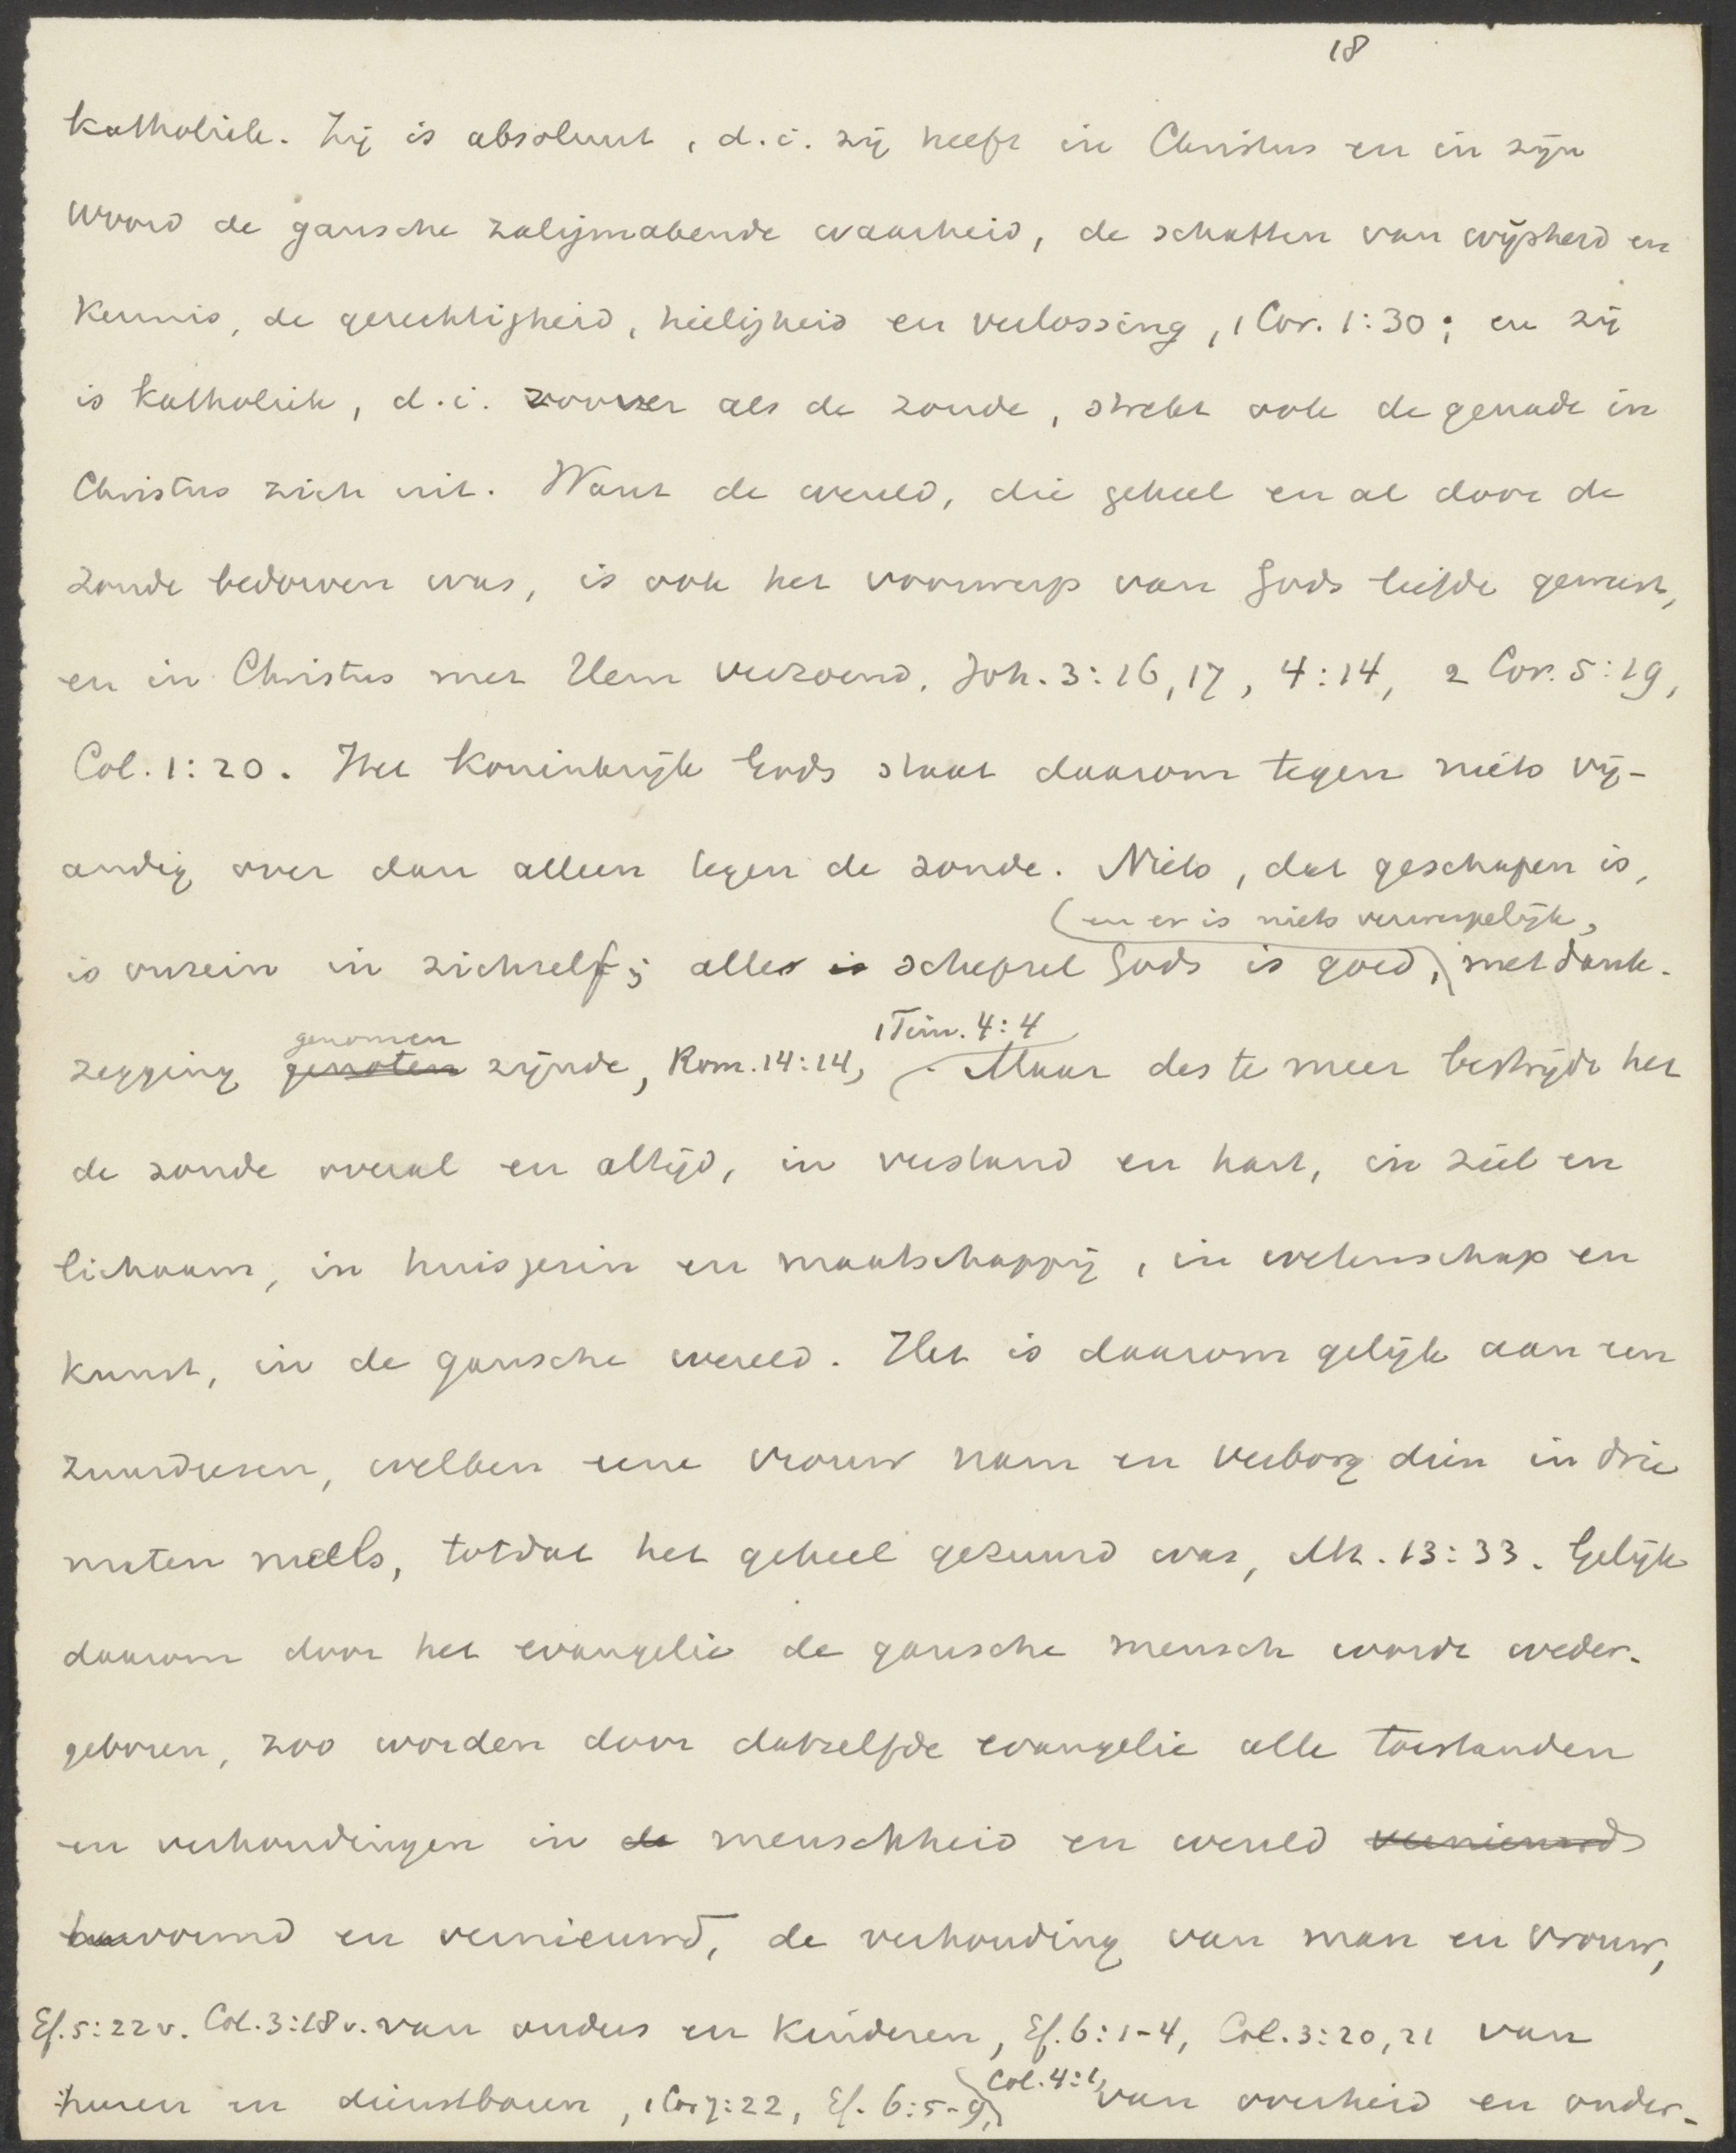 18
katholiek. Zij is absoluut, d.i. zij heeft in Christus en in zijn
Woord de gansche zaligmakende waarheid, de schatten van wijsheid en
kennis, de gerechtigheid, heiligheid en verlossing, 1 Cor. 1:30; en zij
is katholiek, d.i. zoover als de zonde, strekt ook de genade in
Christus zich uit. Want de wereld, die geheel en al door de
zonde bedorven was, is ook het voorwerp van Gods liefde geweest,
en in Christus met Hem verzoend. Joh. 3:16,17, 4:14, 2 Cor. 5:19,
Col. 1:20. Het Koninkrijk Gods staat daarom tegen niets vij-
andig over dan alleen tegen de zonde. Niets, dat geschapen is,
(en er is niets verwerpelijk,
is onrein in zichzelf; alles is schepsel Gods is goed, met dank-
genomen 1 Tim. 4:4
zegging genoten zijnde, Rom. 14:14, . Maar des te meer bestrijdt het
de zonde overal en altijd, in verstand en hart, in ziel en
lichaam, in huisgezin en maatschappij, in wetenschap en
kunst, in de gansche wereld. Het is daarom gelijk aan een
zuurdeesem, welken eene vrouw nam en verborg dien in drie
maten meels, totdat het geheel gezuurd was, Mt. 13:33. Gelijk
daarom door het evangelie de gansche mensch wordt weder-
geboren, zoo worden door datzelfde evangelie alle toestanden
en verhoudingen in de menschheid en wereld vernieuwd
hervormd en vernieuwd, de verhouding van man en vrouw,
Ef. 5:22v. Col. 3:18v. van ouders en kinderen, Ef. 6:1-4, Col. 3:20,21 van
Col. 4:1,
heeren en dienstboden, 1 Cor 7:22, Ef. 6:5-9, van overheid en onder-